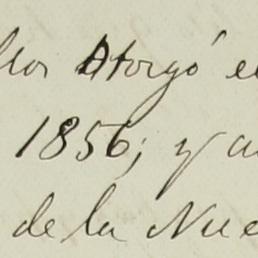 Otorgó e
1856; y a
de la Nue